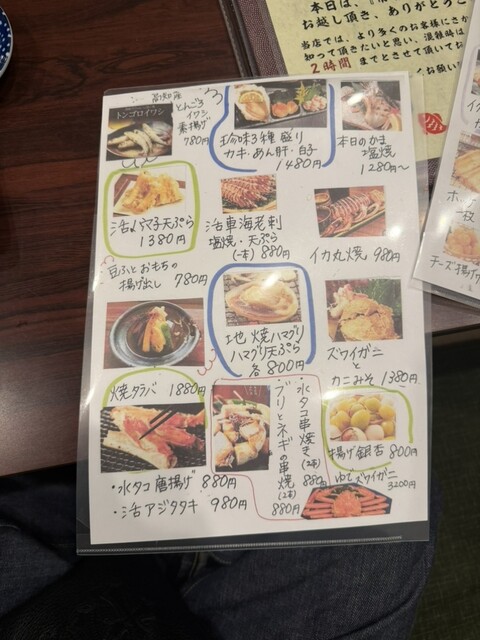 本日は、
お越し頂き、ありがとうご
当店では、より多くのお客様にさか
知って頂きたいと思い、混雑時は
2時間 までとさせて頂いてお
お願い
高知産
トンゴロイワシ
とんごろ
イワシ
素揚げ
780円
珍味3種盛り
カキ・あん肝・白子
1480円
本日のかま
塩焼
1280円~
活ハマ子天ぷら
1380円
活車海老刺
塩焼・天ぷら
(一本) 880円
イカ丸焼 980円
豆ふとおもちの
揚げ出し 780円
地 焼ハマグリ
ハマグリ天ぷら
各800円
ズワイガニ
と
カニみそ 1380円
焼タラバ 1880円
・水タコ串焼き(2本)
880円
・ブリとネギの串焼(2本)
880円
揚げ銀杏 800円
ゆでズワイガニ
3200円
・水タコ唐揚げ 880円
・活アジタタキ 980円
ホッ
一枚
チーズ揚げ